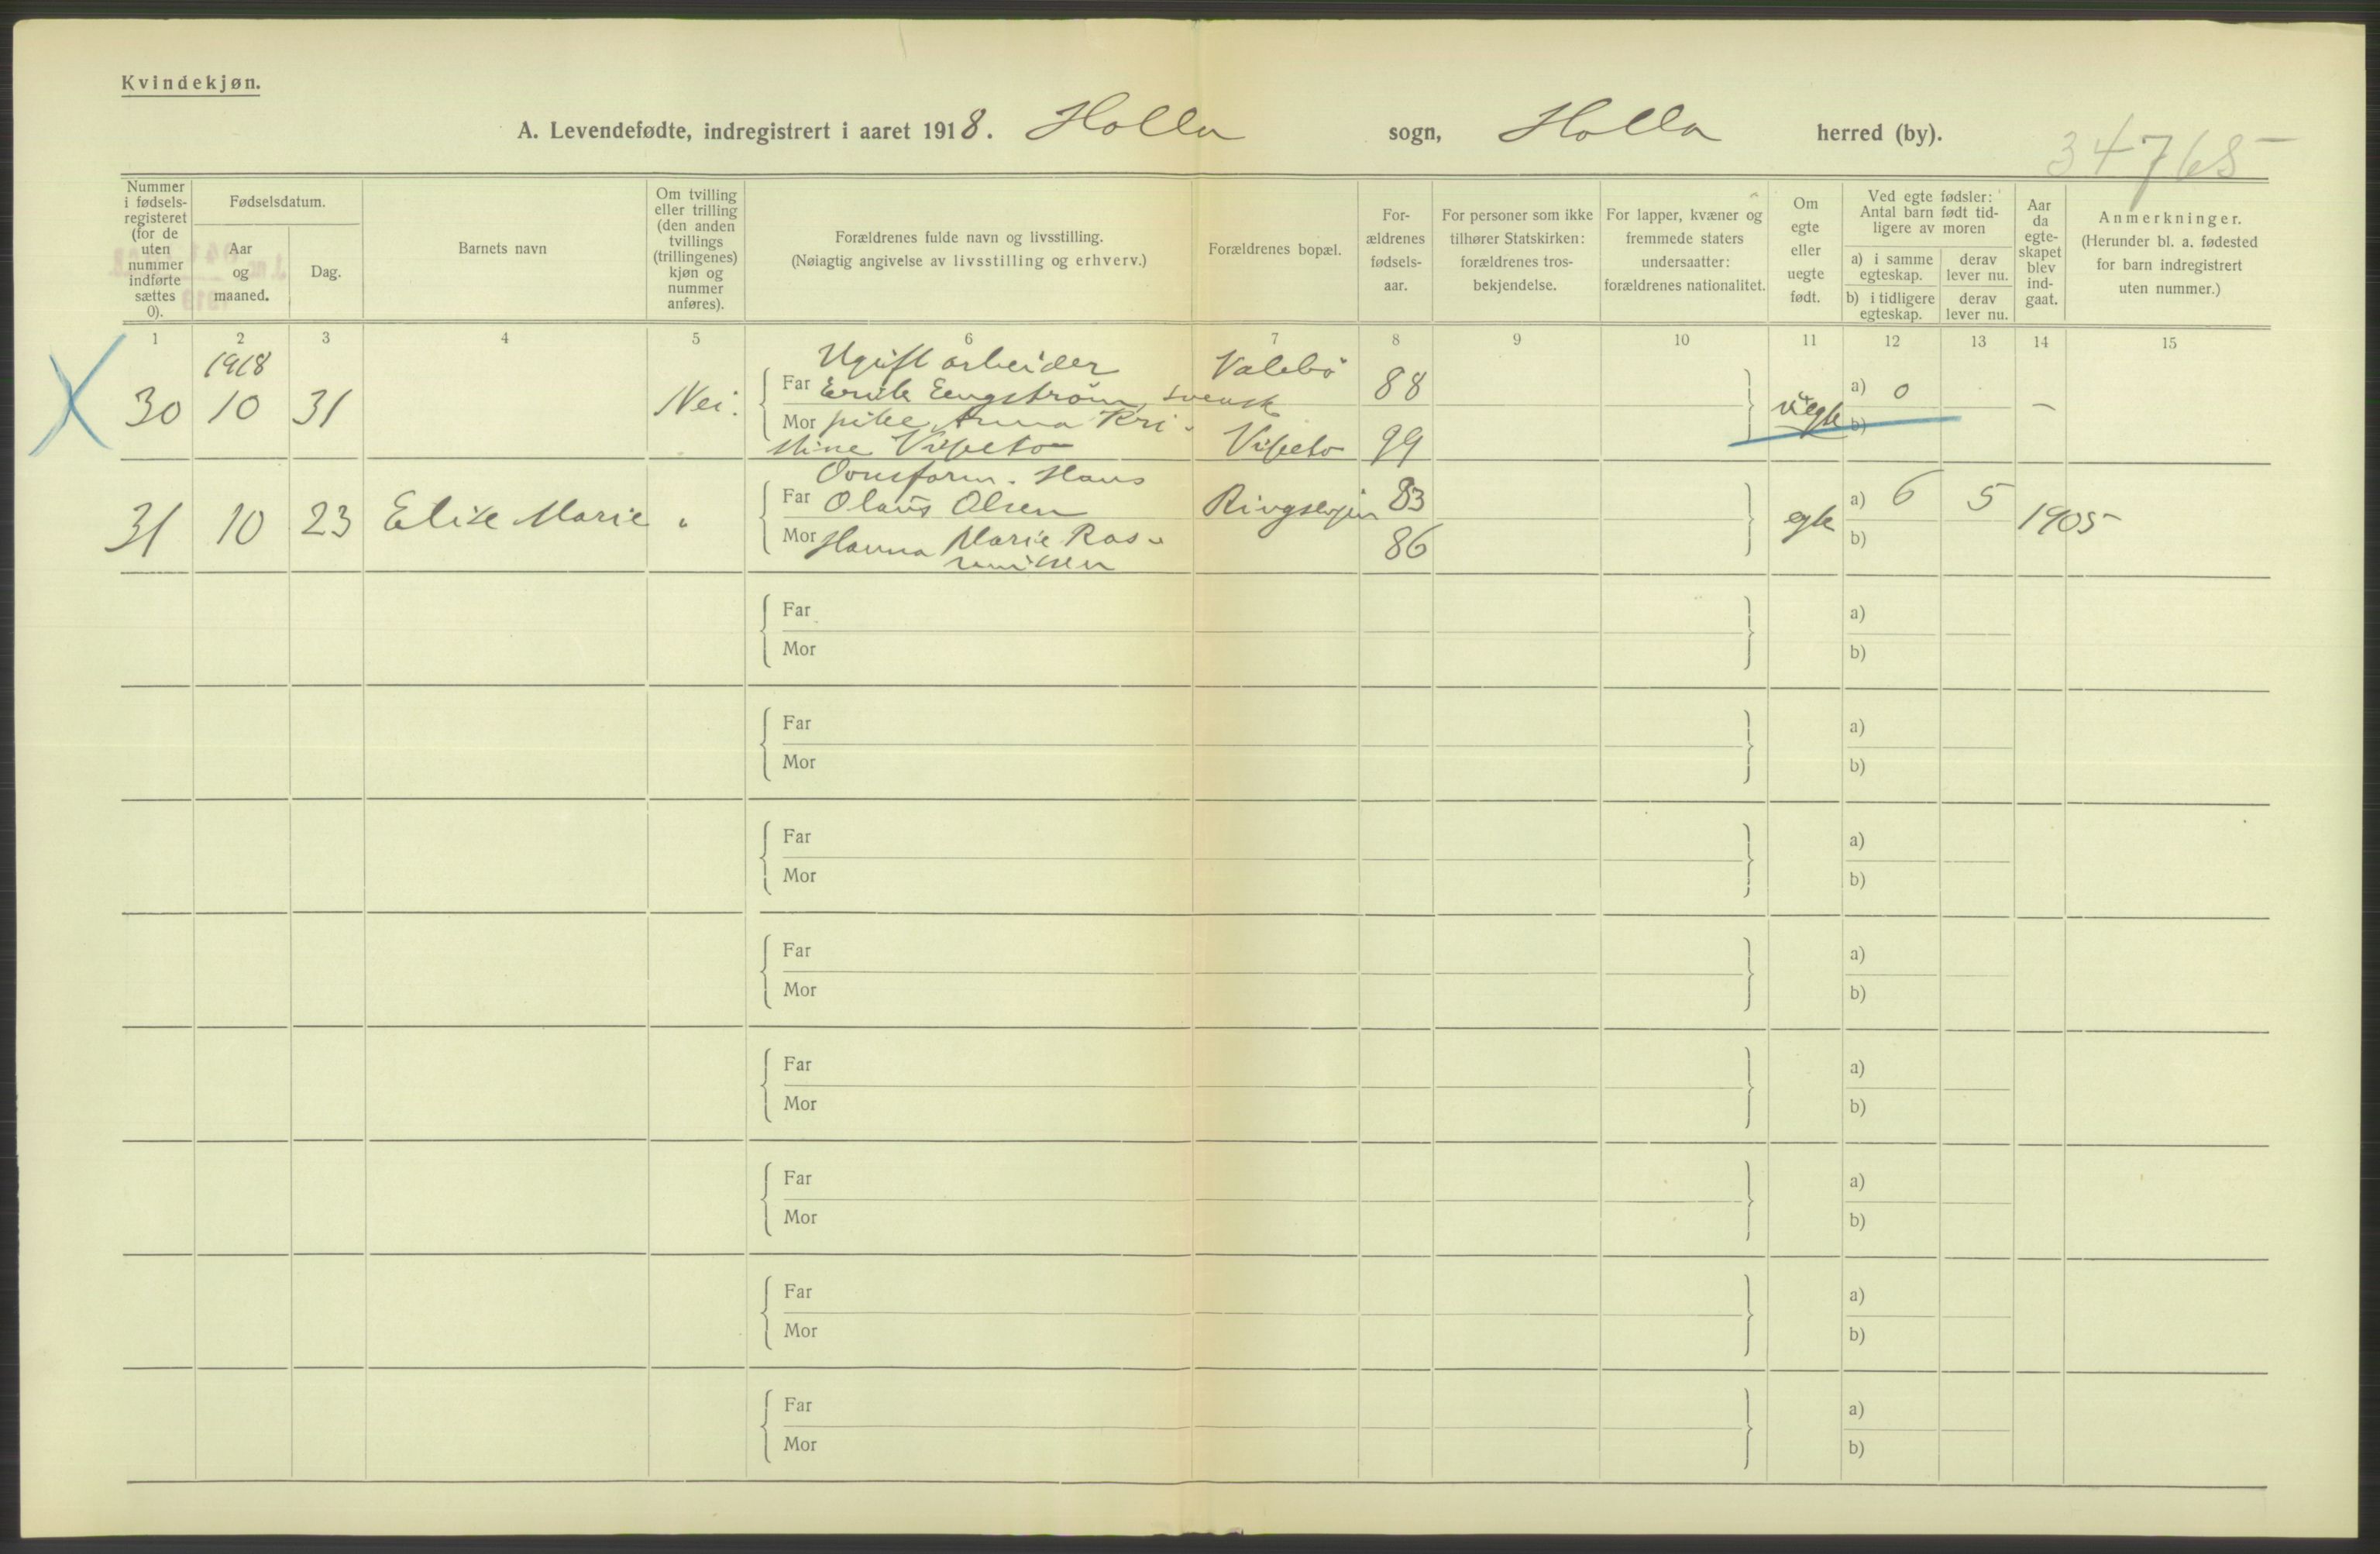 Kvindekjøn.
A. Levendefødte, indregistrert i aaret 1918. Holla sogn, Holla herred (by).
34765
Nummer i fødsels-registeret (for de uten nummer indførte sættes 0).
Fødselsdatum.
Aar og maaned.
Dag.
Barnets navn
Om tvilling eller trilling (den anden tvillings (trillingenes) kjøn og nummer anføres).
Forældrenes fulde navn og livsstilling.
(Nøiagtig angivelse av livsstilling og erhverv.)
Forældrenes bopæl.
For-ældrenes fødsels-aar.
For personer som ikke tilhører Statskirken: forældrenes tros-bekjendelse.
For lapper, kvæner og fremmede staters undersaatter: forældrenes nationalitet.
Om egte eller uegte født.
Ved egte fødsler: Antal barn født tid-ligere av moren
a) i samme egteskap.
derav lever nu.
b) i tidligere egteskap.
derav lever nu.
Aar da egte-skapet blev ind-gaat.
Anmerkninger.
(Herunder bl. a. fødested for barn indregistrert uten nummer.)
1 2 3 4 5 6 7 8 9 10 11 12 13 14 15
1918
Ugift arbeider Valebö
30 10 31 Nei. Far Erik Engström, svensk 88 uegte a) 0 –
Mor pike Anna Kri- b)
stine Vipeto Vipeto 99
Ovnsform. Hans
31 10 23 Elise Marie " Far Olaus Olsen Ringsevjen 83 egte a) 6 5 1905
Mor Hanna Marie Ras- 86 b)
mussen
Far a)
Mor b)
Far a)
Mor b)
Far a)
Mor b)
Far a)
Mor b)
Far a)
Mor b)
Far a)
Mor b)
Far a)
Mor b)
Far a)
Mor b)